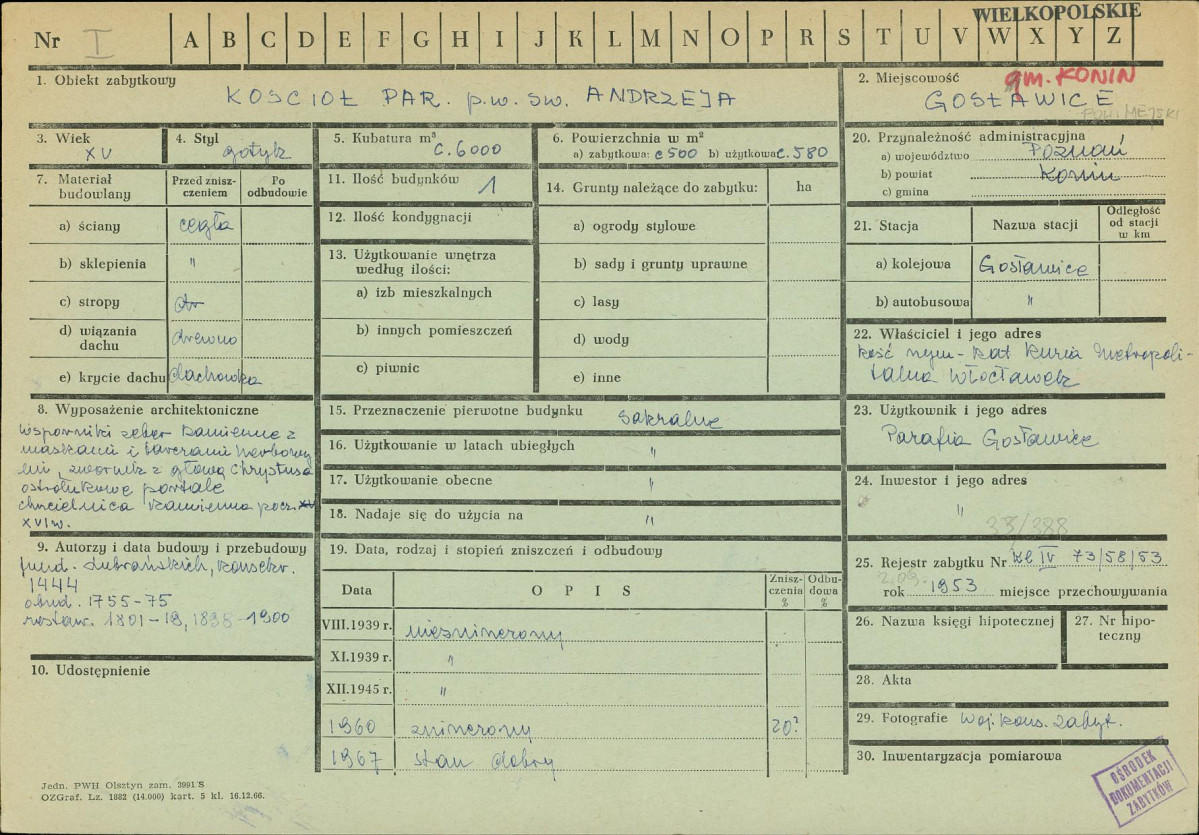 WIELKOPOLSKIE
Nr I A B C D E F G H I J K L M N O P R S T U V W X Y Z
1. Obiekt zabytkowy
KOŚCIOŁ PAR. p.w. św. ANDRZEJA
2. Miejscowość
gm. KONIN
GOSŁAWICE
3. Wiek
XV
4. Styl
gotyk
5. Kubatura m³
c. 6000
6. Powierzchnia w m²
a) zabytkowa: c 500 b) użytkowa c. 580
7. Materiał budowlany
Przed zniszczeniem
Po odbudowie
a) ściany cegła
b) sklepienia "
c) stropy
d) wiązania dachu drewno
e) krycie dachu dachówka
8. Wyposażenie architektoniczne
wsporniki żeber kamienne z
maskami i tarczami herbowy
mi, zwornik z głową Chrystusa
ostrołukowe portale
chrzcielnica kamienna pocz.
XVI w.
9. Autorzy i data budowy i przebudowy
fund. Lubrańskich, konsekr.
1444
odbud. 1755-75
restaur. 1801-19, 1898-1900
10. Udostępnienie
11. Ilość budynków 1
12. Ilość kondygnacji
13. Użytkowanie wnętrza
według ilości:
a) izb mieszkalnych
b) innych pomieszczeń
c) piwnic
14. Grunty należące do zabytku: ha
a) ogrody stylowe
b) sady i grunty uprawne
c) lasy
d) wody
e) inne
15. Przeznaczenie pierwotne budynku sakralne
16. Użytkowanie w latach ubiegłych "
17. Użytkowanie obecne "
18. Nadaje się do użycia na "
19. Data, rodzaj i stopień zniszczeń i odbudowy
Data O P I S Zniszczenia % Odbudowa %
VIII.1939 r. niezniszczony
XI.1939 r. "
XII.1945 r. "
1960 zniszczony 20?
1967 stan dobry
20. Przynależność administracyjna
a) województwo Poznań
b) powiat Konin
c) gmina
21. Stacja Nazwa stacji Odległość od stacji w km
a) kolejowa Gosławice
b) autobusowa "
22. Właściciel i jego adres
Kość rzym-kat Kuria Metropoli-
talna Włocławek
23. Użytkownik i jego adres
Parafia Gosławice
24. Inwestor i jego adres
"
33/388
25. Rejestr zabytku Nr kl IV 73/58/53
rok 1953 miejsce przechowywania
26. Nazwa księgi hipotecznej
27. Nr hipoteczny
28. Akta
29. Fotografie Woj. kons. zabyt.
30. Inwentaryzacja pomiarowa
OŚRODEK
DOKUMENTACJI
ZABYTKÓW
Jedn. PWH Olsztyn zam. 3991 S
OZGraf. Lz. 1882 (14.000) kart. 5 kl. 16.12.66.